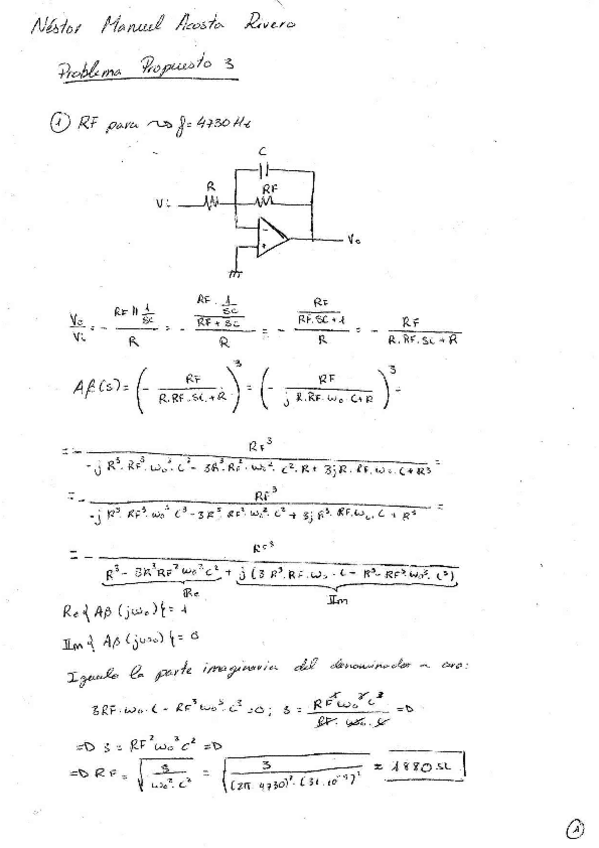 Néstor Manuel Acosta Rivero
Problema Propuesto 3
① RF para f=4730Hz
C
R RF
Vi
- +
Vo
Vo/Vi = - (RF || 1/SC)/R = - (RF · 1/SC / RF + SC)/R = - (RF / RF.SC+1)/R = - RF / R.RF.SC+R
Aβ(s) = (- RF / R.RF.SC+R)³ = (- RF / j R.RF.ω₀.C+R)³ =
= - RF³ / -j R³.RF³.ω₀³.C³ - 3R².RF².ω₀².C².R + 3jR.RF.ω₀.C+R³ =
= - RF³ / -j R³.RF³.ω₀³C³ - 3R³ RF².ω₀².C² + 3j R³.RF.ω₀.C + R³ =
= - RF³ / R³ - 3R³RF²ω₀²C² + j(3R³.RF.ω₀.C - R³.RF³.ω₀³.C³)
Re IIm
Re{Aβ(jω₀)}=1
IIm{Aβ(jω₀)}=0
Igualo la parte imaginaria del denominador a cero:
3RF.ω₀.C - RF³ω₀³.C³=0; 3 = RF³ω₀³C³ / RF.ω₀.C =D
=D 3 = RF²ω₀²C² =D
=D RF = √(3 / ω₀².C²) = √(3 / (2π.4730)².(31.10⁻⁹)²) = 1880Ω
①